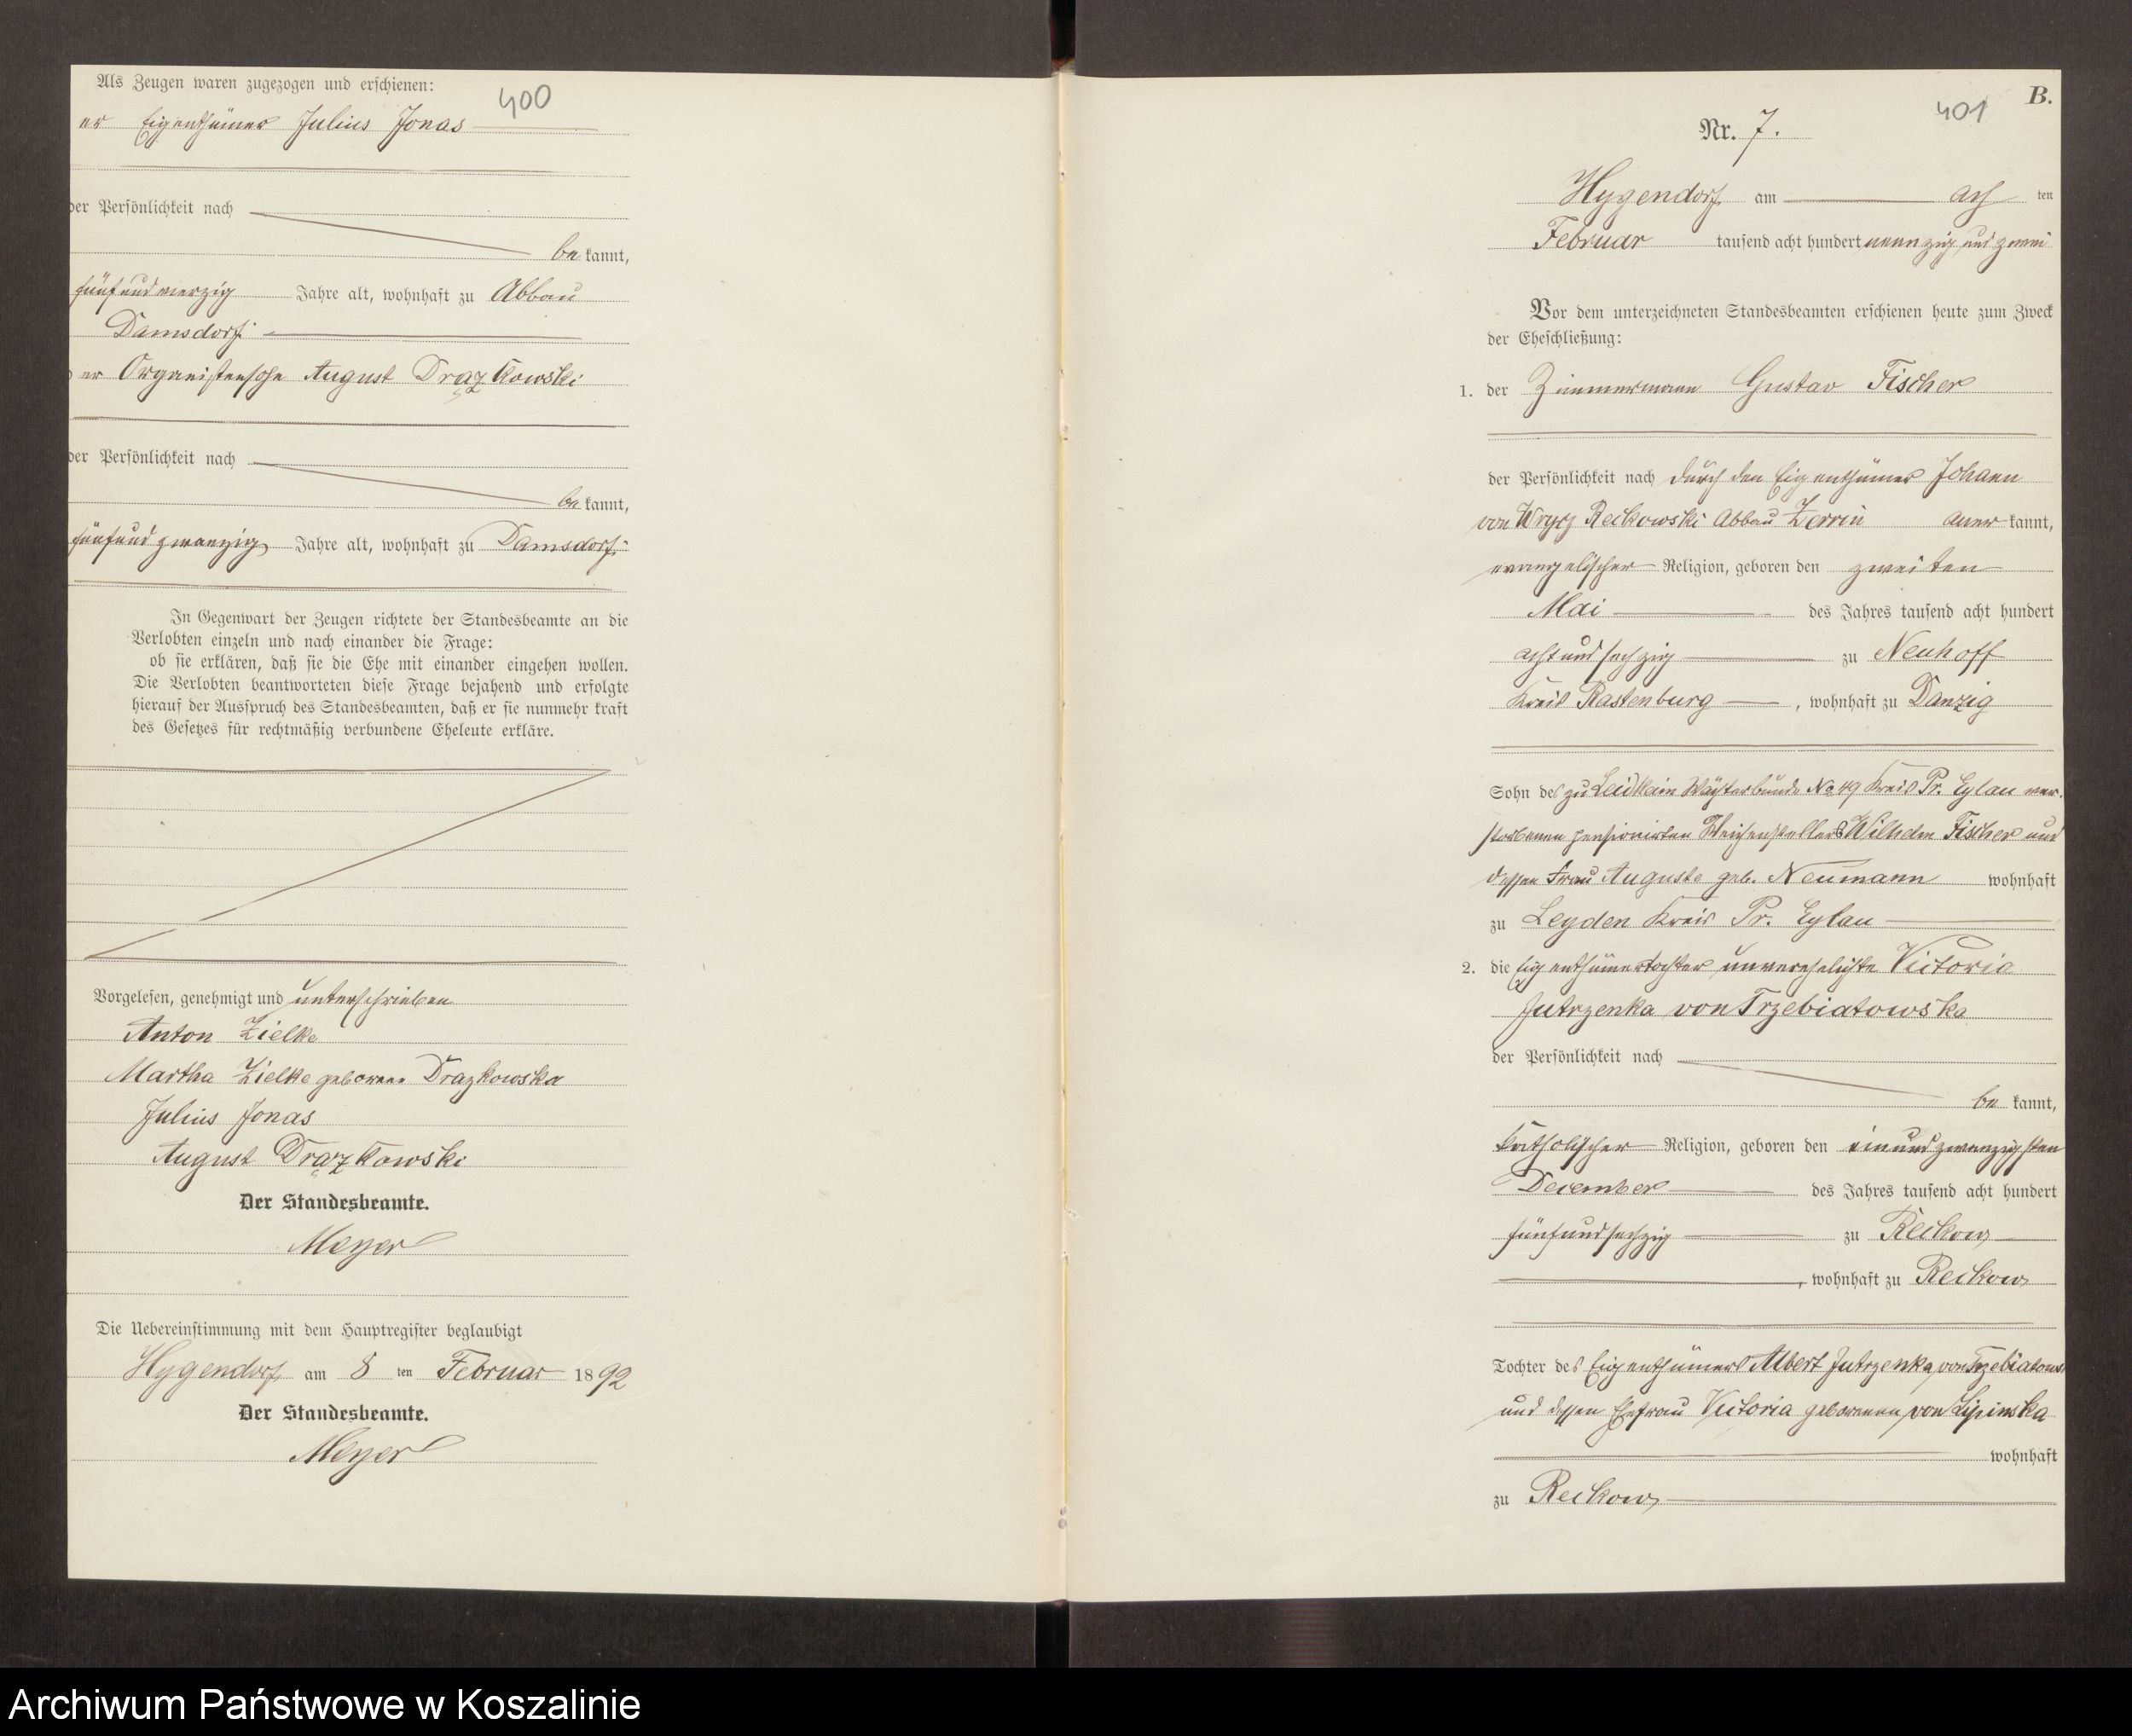 400
Als Zeugen waren zugezogen und erschienen:
er Eigenthümer Julius Jonas
der Persönlichkeit nach
be kannt,
fünfundvierzig Jahre alt, wohnhaft zu Abbau
Damsdorf.
er Organistensohn August Drązkowski
der Persönlichkeit nach
be kannt,
fünfundzwanzig Jahre alt, wohnhaft zu Damsdorf.
In Gegenwart der Zeugen richtete der Standesbeamte an die
Verlobten einzeln und nach einander die Frage:
ob sie erklären, daß sie die Ehe mit einander eingehen wollen.
Die Verlobten beantworteten diese Frage bejahend und erfolgte
hierauf der Ausspruch des Standesbeamten, daß er sie nunmehr kraft
des Gesetzes für rechtmäßig verbundene Eheleute erkläre.
Vorgelesen, genehmigt und unterschrieben
Anton Zielke
Martha Zielke geborene Drazkowska
Julius Jonas
August Drązkowski
Der Standesbeamte.
Meyer
Die Uebereinstimmung mit dem Hauptregister beglaubigt
Hygendorf, am 8 ten Februar 1892
Der Standesbeamte.
Meyer
B.
401
Nr. 7.
Hygendorf am ach ten
Februar tausend acht hundert neunzig und zwei
Vor dem unterzeichneten Standesbeamten erschienen heute zum Zweck
der Eheschließung:
1. der Zimmermann Gustav Fischer
der Persönlichkeit nach durch den Eigenthümer Johann
von Wrycz Reckowski Abbau Zerrin aner kannt,
evangelischer Religion, geboren den zweiten
Mai des Jahres tausend acht hundert
achtundsechzig zu Neuhoff
Kreis Rastenburg, wohnhaft zu Danzig
Sohn des zu No 49 Kreis Pr. Eylau ver-
storbenen pensionirten Weichenstellers Wilhelm Fischer und
dessen Frau Auguste geb. Neumann wohnhaft
zu Leyden Kreis Pr. Eylau
2. die Eigenthümertochter unverehelichte Victoria
Jutrzenka von Trzebiatowska
der Persönlichkeit nach
be kannt,
katholischer Religion, geboren den einundzwanzigsten
December des Jahres tausend acht hundert
fünfundsechzig zu Reckow
, wohnhaft zu Reckow
Tochter des Eigenthümers Albert Jutrzenka von Trzebiatows
und dessen Ehefrau Victoria geborenen von Lipinska
wohnhaft
zu Reckow
Archiwum Państwowe w Koszalinie